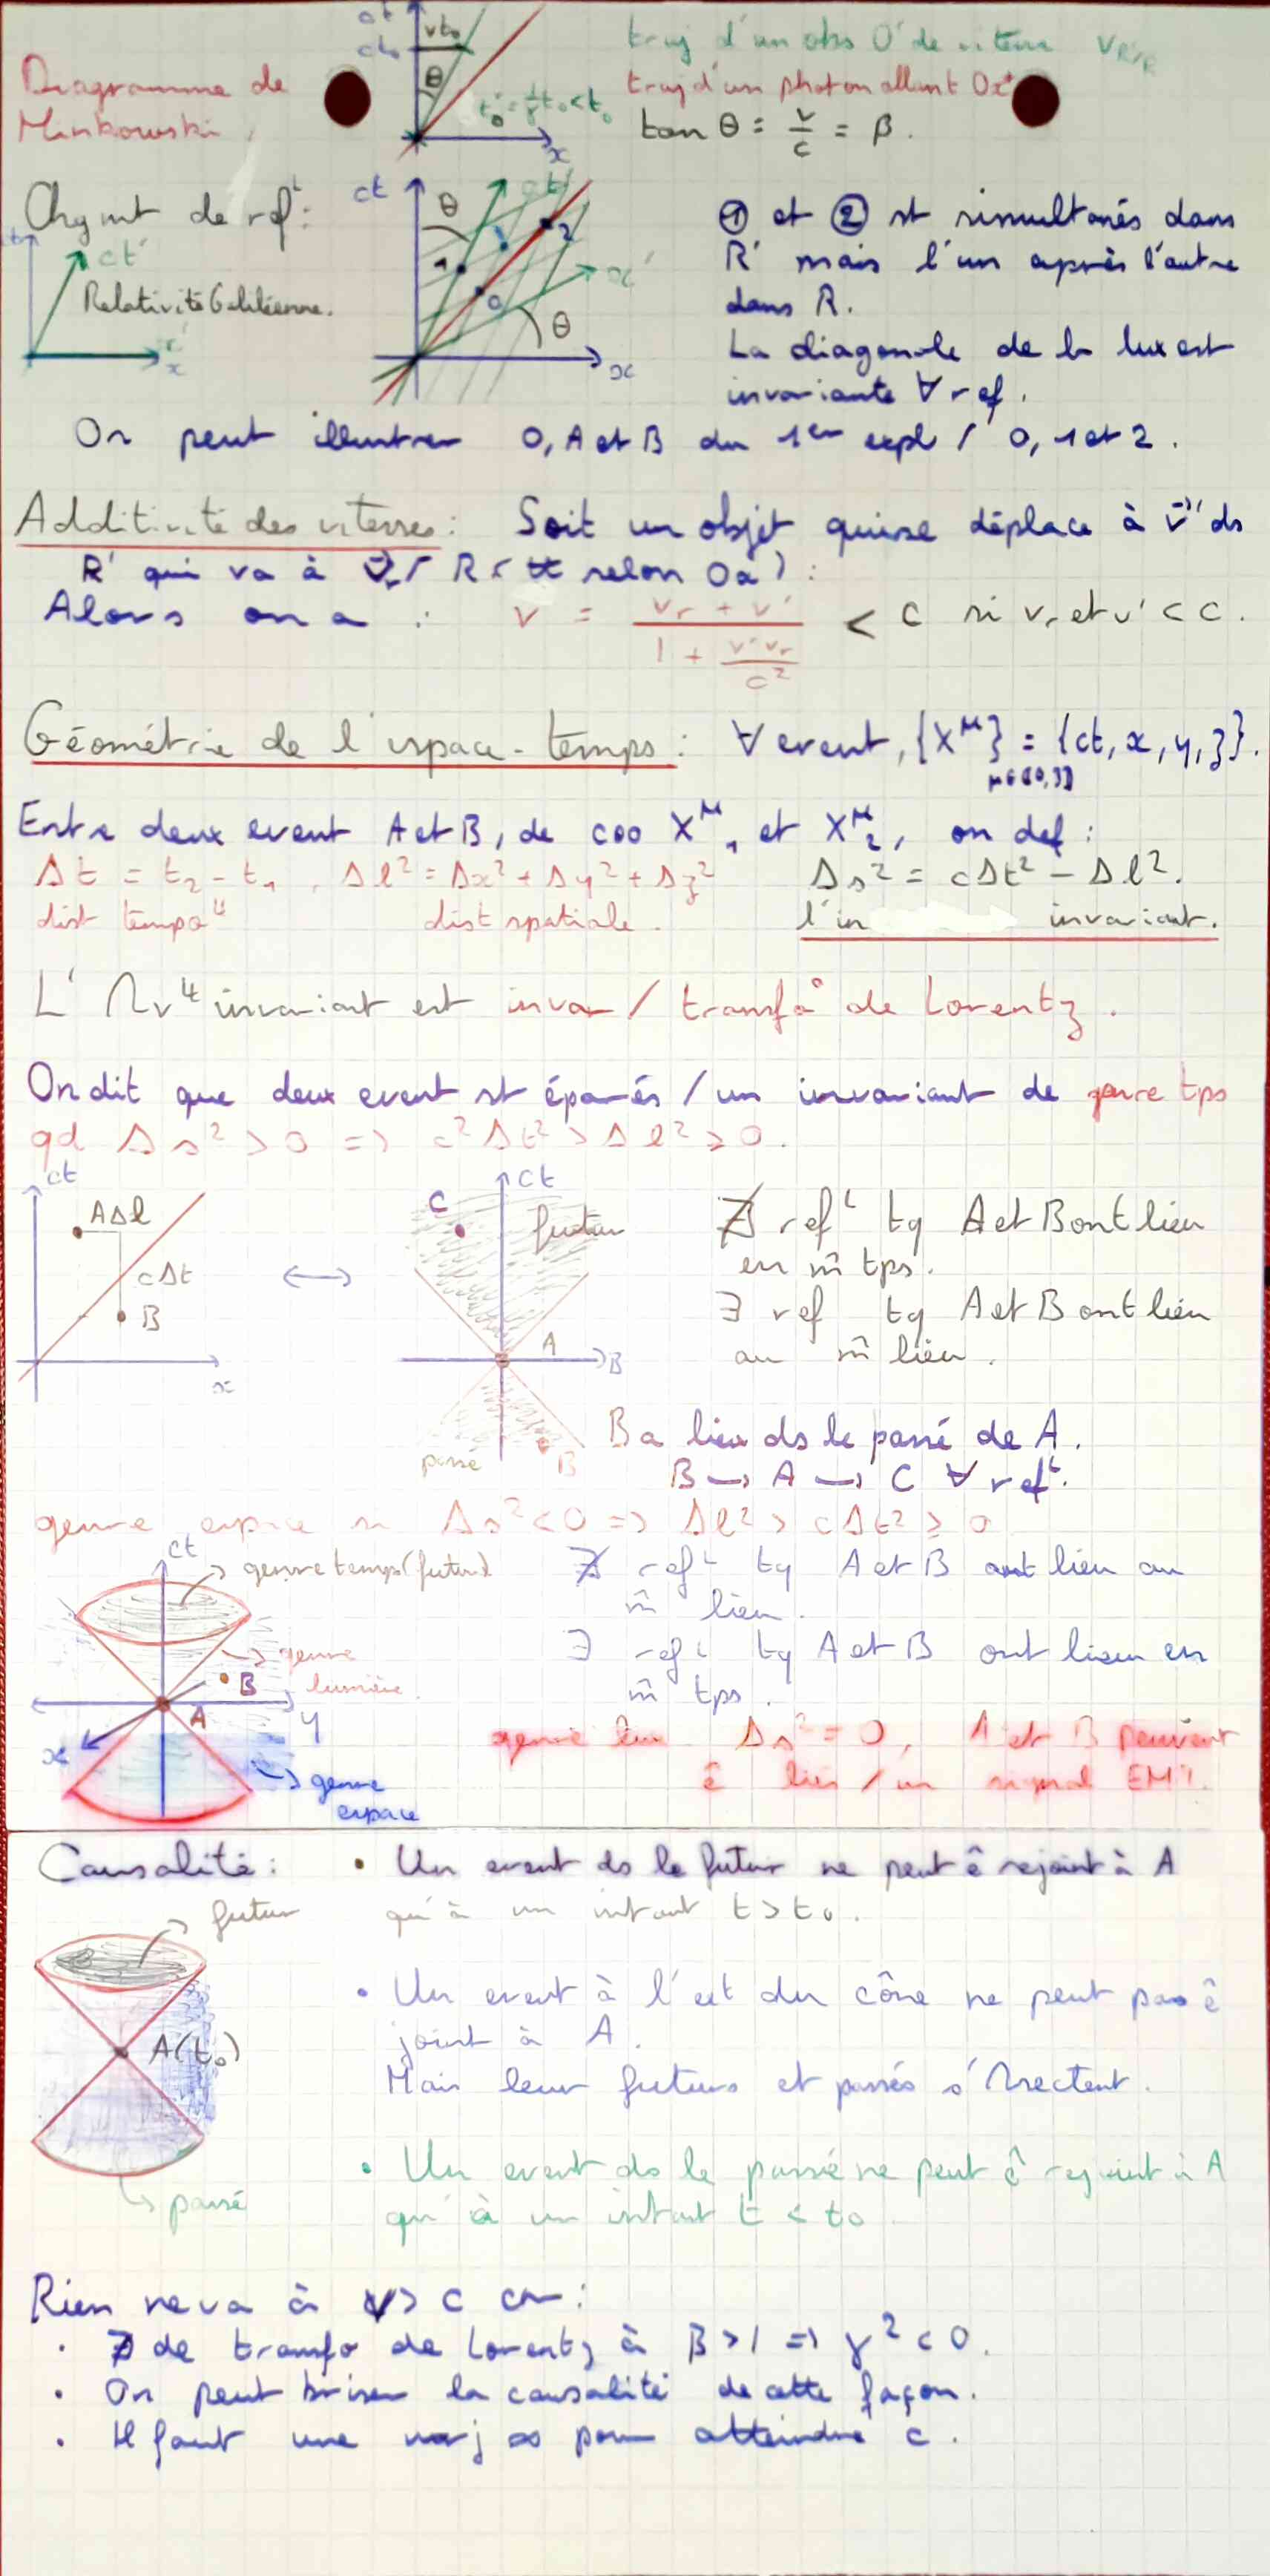 ct
ct₀ vt₀
traj d'un obs O' de vitesse V R'/R
Diagramme de
Minkowski
θ
t₀' = 1/γ t₀ < t₀
traj d'un photon allant Ox⁺
x
tan θ = v/c = β.
Chgmt de refᵗ:
ct ct'
θ
1 2
0
x'
θ
x
ct'
Relativité Galiléenne.
x' x
① et ② st simultanés dans
R' mais l'un après l'autre
dans R.
La diagonale de la lux est
invariante ∀ ref.
On peut illustrer O, A et B du 1er expl / 0, 1 et 2.
Additivité des vitesses: Soit un objet qui se déplace à v⃗' ds
R' qui va à v⃗r / R ( tt selon Ox):
Alors on a : v = (vr + v') / (1 + v'vr/c²) < c si vr et v' < c.
Géométrie de l'espace-temps: ∀ event, {X^μ} = {ct, x, y, z}.
μ∈[[0,3]]
Entre deux event A et B, de coo X^μ₁ et X^μ₂, on def:
Δt = t₂ - t₁, Δl² = Δx² + Δy² + Δz² Δs² = cΔt² - Δl².
dist tempoˡˡ dist spatiale. l'in invariant.
L' ∩vˡˡ invariant est invar / transfo° de Lorentz.
On dit que deux event st éparés / un invariant de genre tps
qd Δs² > 0 => c²Δt² > Δl² ≥ 0.
ct
A Δl
cΔt
B
x
ct
C futur
A
B
passé B
∄ refᵗ tq A et B ont lieu
en m̂ tps.
∃ ref tq A et B ont lieu
au m̂ lieu.
B a lieu ds le passé de A.
B → A → C ∀ refᵗ.
genre espace si Δs² < 0 => Δl² > cΔt² ≥ 0
ct
genre temps (futur)
genre
lumière.
B
A
y
x
genre
espace
∄ refᵗ tq A et B ont lieu au
m̂ lieu.
∃ refᵗ tq A et B ont lieu en
m̂ tps.
genre lux Δs² = 0, A et B peuvent
ê liés / un signal EM¹.
Causalité: • Un event ds le futur ne peut ê rejoint à A
qu'à un instant t > t₀.
futur
A(t₀)
passé
• Un event à l'ext du cône ne peut pas ê
joint à A.
Mais leur futurs et passés s'∩sectent.
• Un event ds le passé ne peut ê rejoint à A
qu'à un instant t < t₀
Rien ne va à v > c car:
• ∄ de transfo de Lorentz à β > 1 => γ² < 0.
• On peut briser la causalité de cette façon.
• Il faut une nrj ∞ pour atteindre c.